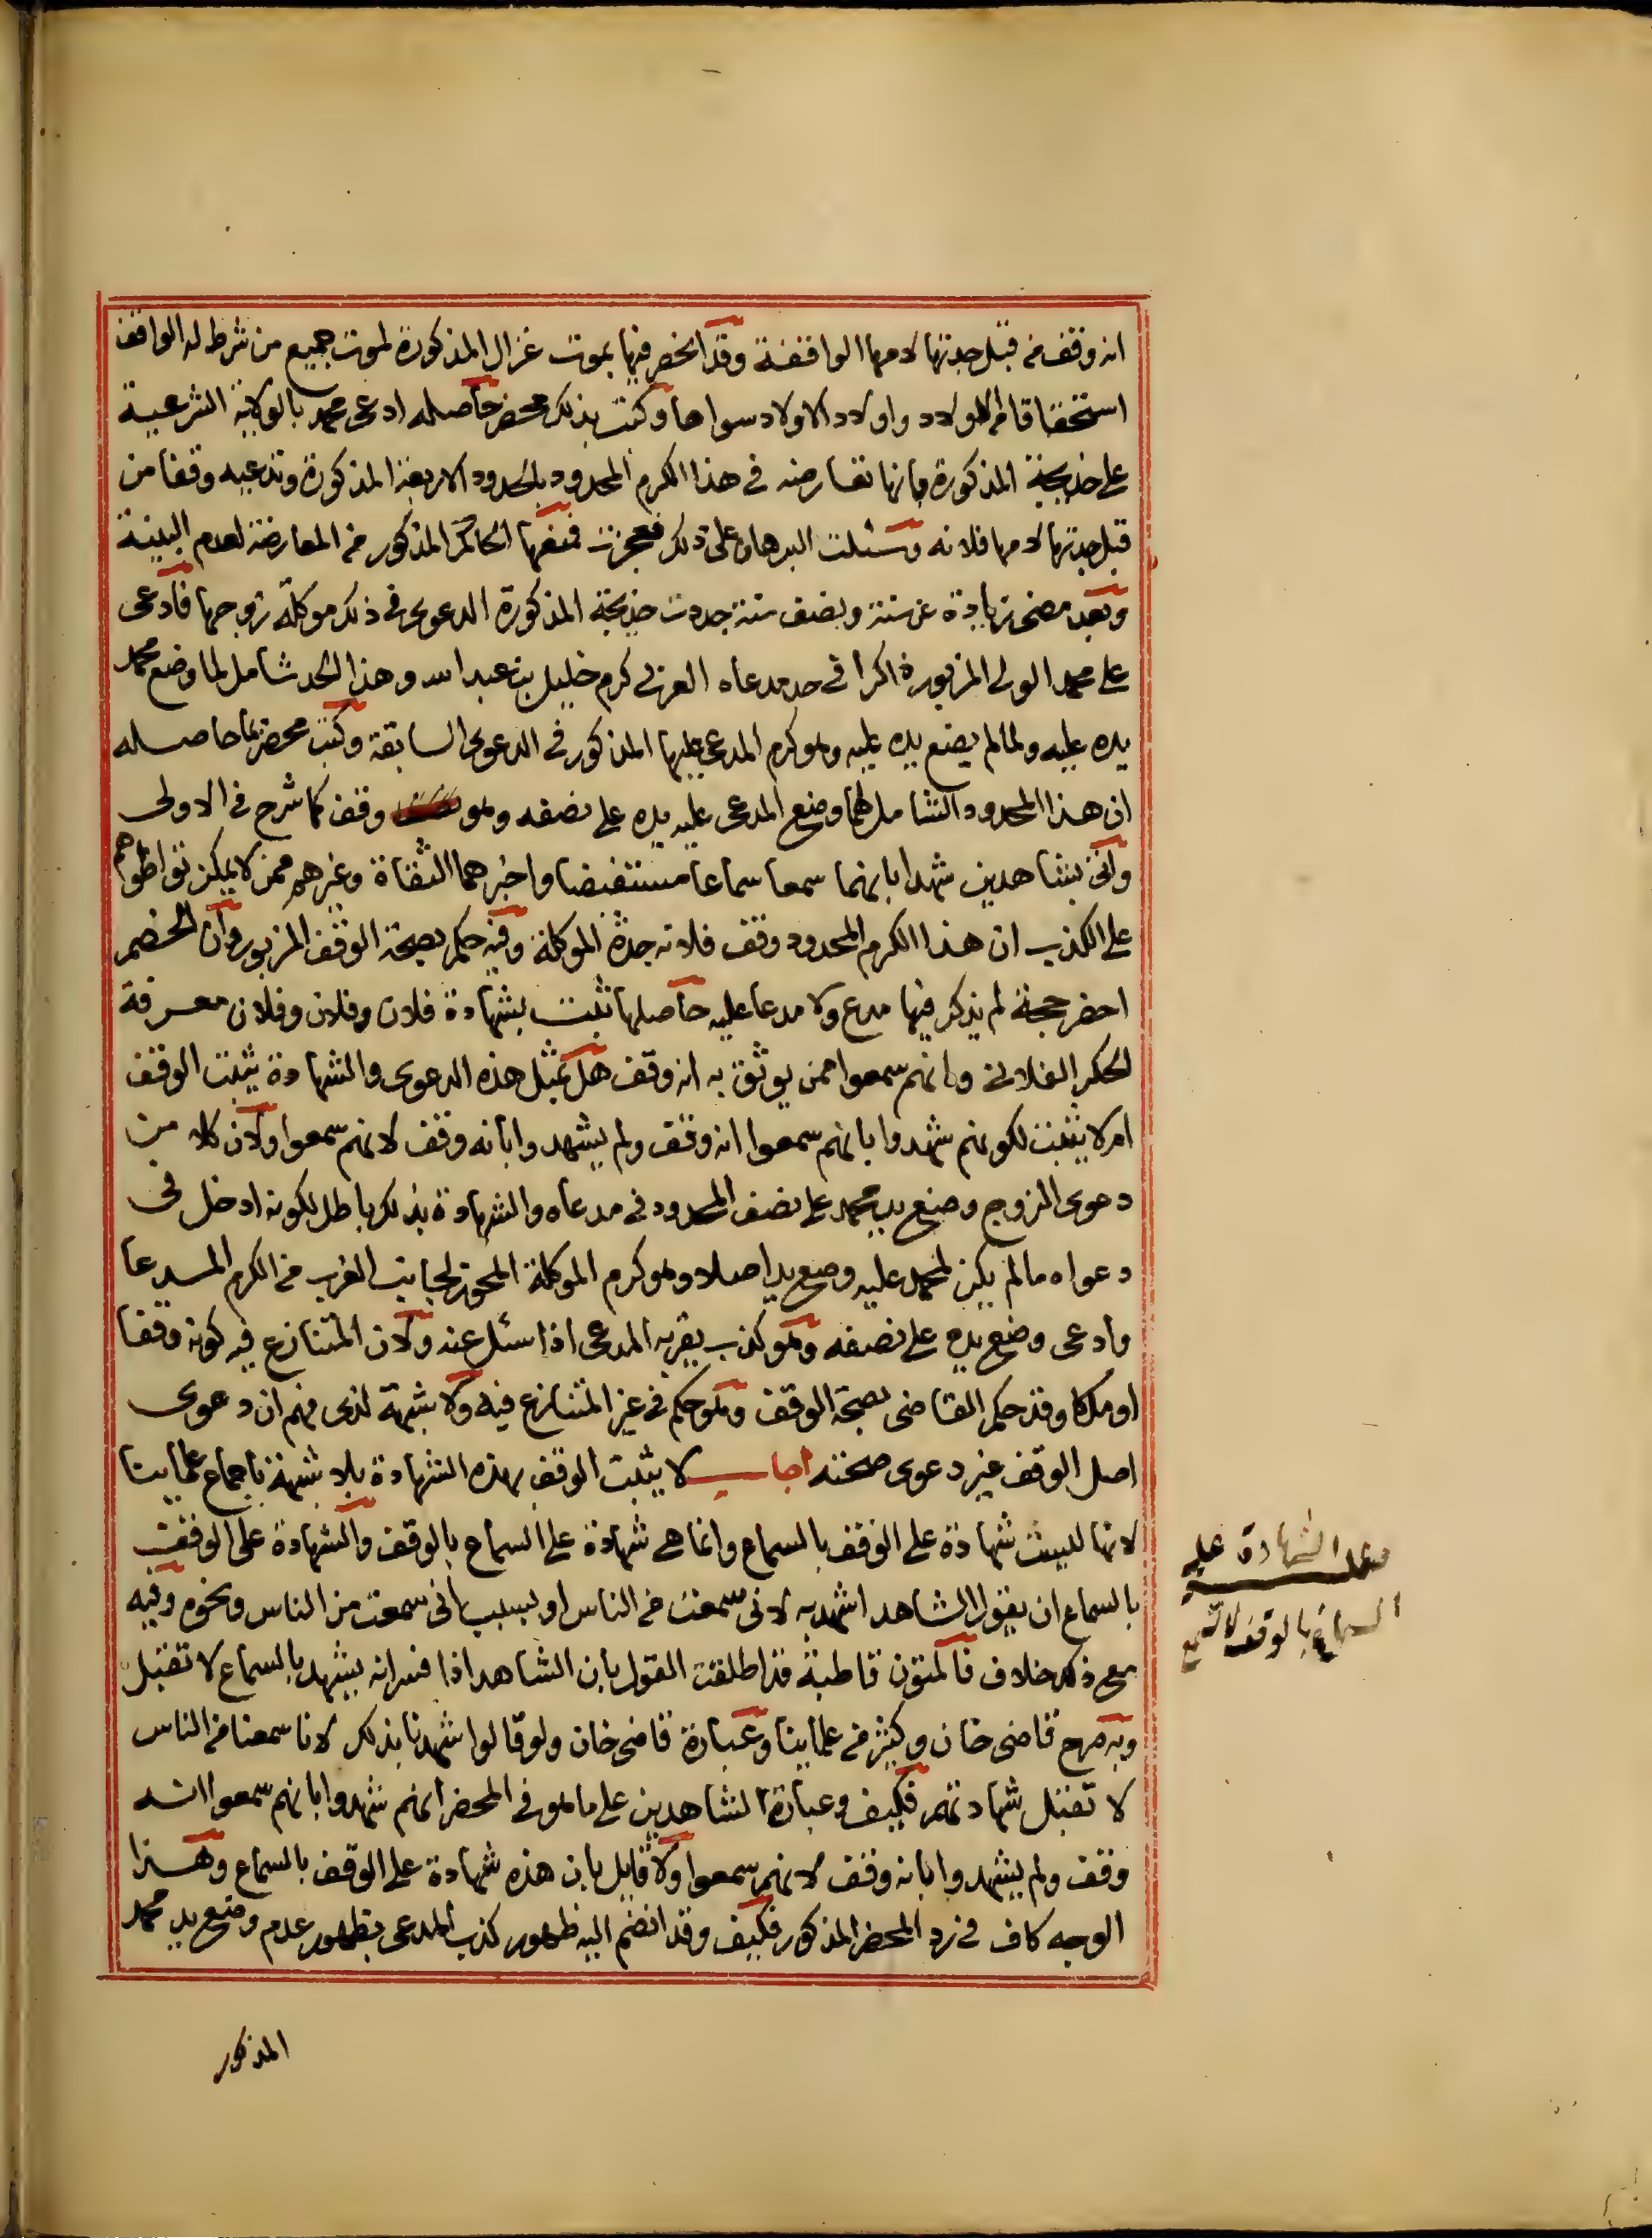 انه وقف من قبل جدتها لامها الواقفة وقد انحصر فيها بموت غزال المذكورة لموت جميع من شرط له الواقف
استحقاقا من الاولاد واولاد الاولاد سواها وكتب بذلك محضر حاصله ادعى محمد بالولاية الشرعية
على خديجة المذكورة بانها تعارضه في هذا الكرم المحدود بالحدود الاربعة المذكورة وتدعيه وقفا من
قبل جدتها لامها فلانه وسئلت البرهان على ذلك فعجزت فمنعها الحاكم المذكور من المعارضة لعدم البينة
وبعد مضى زيادة عن سنة ونصف سنة جددت خديجة المذكورة الدعوى في ذلك موكلة زوجها فادعى
على محمد الولى المزبور ذاكرا في حد مدعاه الغربي كرم خليل بن عبد الله وهذا الحد شامل لما وضع محمد
يده عليه ولما لم يضع يده عليه وهو كرم المدعى عليها المذكور في الدعوى السابقة وكتب محضرتها حاصله
ان هذا المحدود الشامل لهما وضع المدعى عليه يده على نصفه وهو وقف كما شرح في الاولى
واتى بشاهدين شهدا بانهما سمعا سماعا مستفيضا واخبرهما الثقاة وغيرهم ممن لا يمكن تواطؤهم
على الكذب ان هذا الكرم المحدود وقف فلانه جدة الموكلة وفيه حكم بصحة الوقف المزبور وان الخصم
احضر حجة لم يذكر فيها مدع ولا مدعا عليه حاصلها ثبت بشهادة فلان وفلان وفلان معرفة
الحكر الفلاني وانهم سمعوا ممن يوثق به انه وقف هل بمثل هذه الدعوى والشهادة يثبت الوقف
ام لا يثبت لكونهم شهدوا بانهم سمعوا انه وقف ولم يشهدوا بانه وقف لانهم سمعوا ولان كلا من
دعوى الزوج وضع يد محمد على نصف المحدود في مدعاه والشهادة بذلك باطل لكونه ادخل في
دعواه ما لم يكن لمحمد عليه وضع يد اصلا وهو كرم الموكلة المحوز لجانب الغرب من الكرم المدعا
وادعى وضع يده على نصفه وهو كذب يقر به المدعى اذا سئل عنه ولان المتنازع فيه كونه وقفا
او ملكا وقد حكم القاضى بصحة الوقف وهو حكم في غير المتنازع فيه ولا شبهة لذى فهم ان دعوى
اصل الوقف غير دعوى صحته اجاب لا يثبت الوقف بهذه الشهادة بلا شبهة باجماع علمائنا
لانها ليست شهادة على الوقف بالسماع وانما هي شهادة على السماع بالوقف والشهادة على الوقف
بالسماع ان يقول الشاهد اشهد به لانى سمعت من الناس او بسبب انى سمعت من الناس ونحوه وفيه
مع ذلك خلاف فالمتون قاطبة قد اطلقت القول بان الشاهد اذا فسر انه يشهد بالسماع لا تقبل
وبه صرح قاضى خان وكثير من علمائنا وعبارة قاضى خان ولو قالوا شهدنا بذلك لانا سمعنا من الناس
لا تقبل شهادتهم فكيف وعبارة الشاهدين على ما هو في المحضر انهم شهدوا بانهم سمعوا انه
وقف ولم يشهدوا بانه وقف لانهم سمعوا ولا قايل بان هذه شهادة على الوقف بالسماع وهذا
الوجه كاف في رد المحضر المذكور فكيف وقد انضم اليه ظهور كذب المدعى بظهور عدم وضع يد محمد
المذكور
الشهادة على
السماع بالوقف لا تسمع